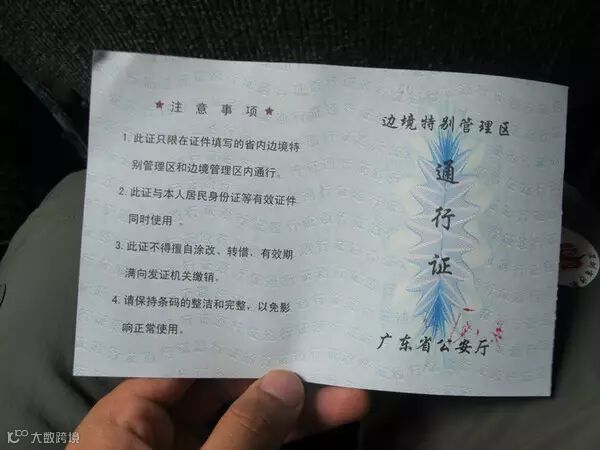 ★ 注意事项 ★
1. 此证只限在证件填写的省内边境特
别管理区和边境管理区内通行。
2. 此证与本人居民身份证等有效证件
同时使用 。
3. 此证不得擅自涂改、转借、有效期
满向发证机关缴销。
4. 请保持条码的整洁和完整，以免影
响正常使用。
边境特别管理区
通
行
证
广东省公安厅
大数跨境